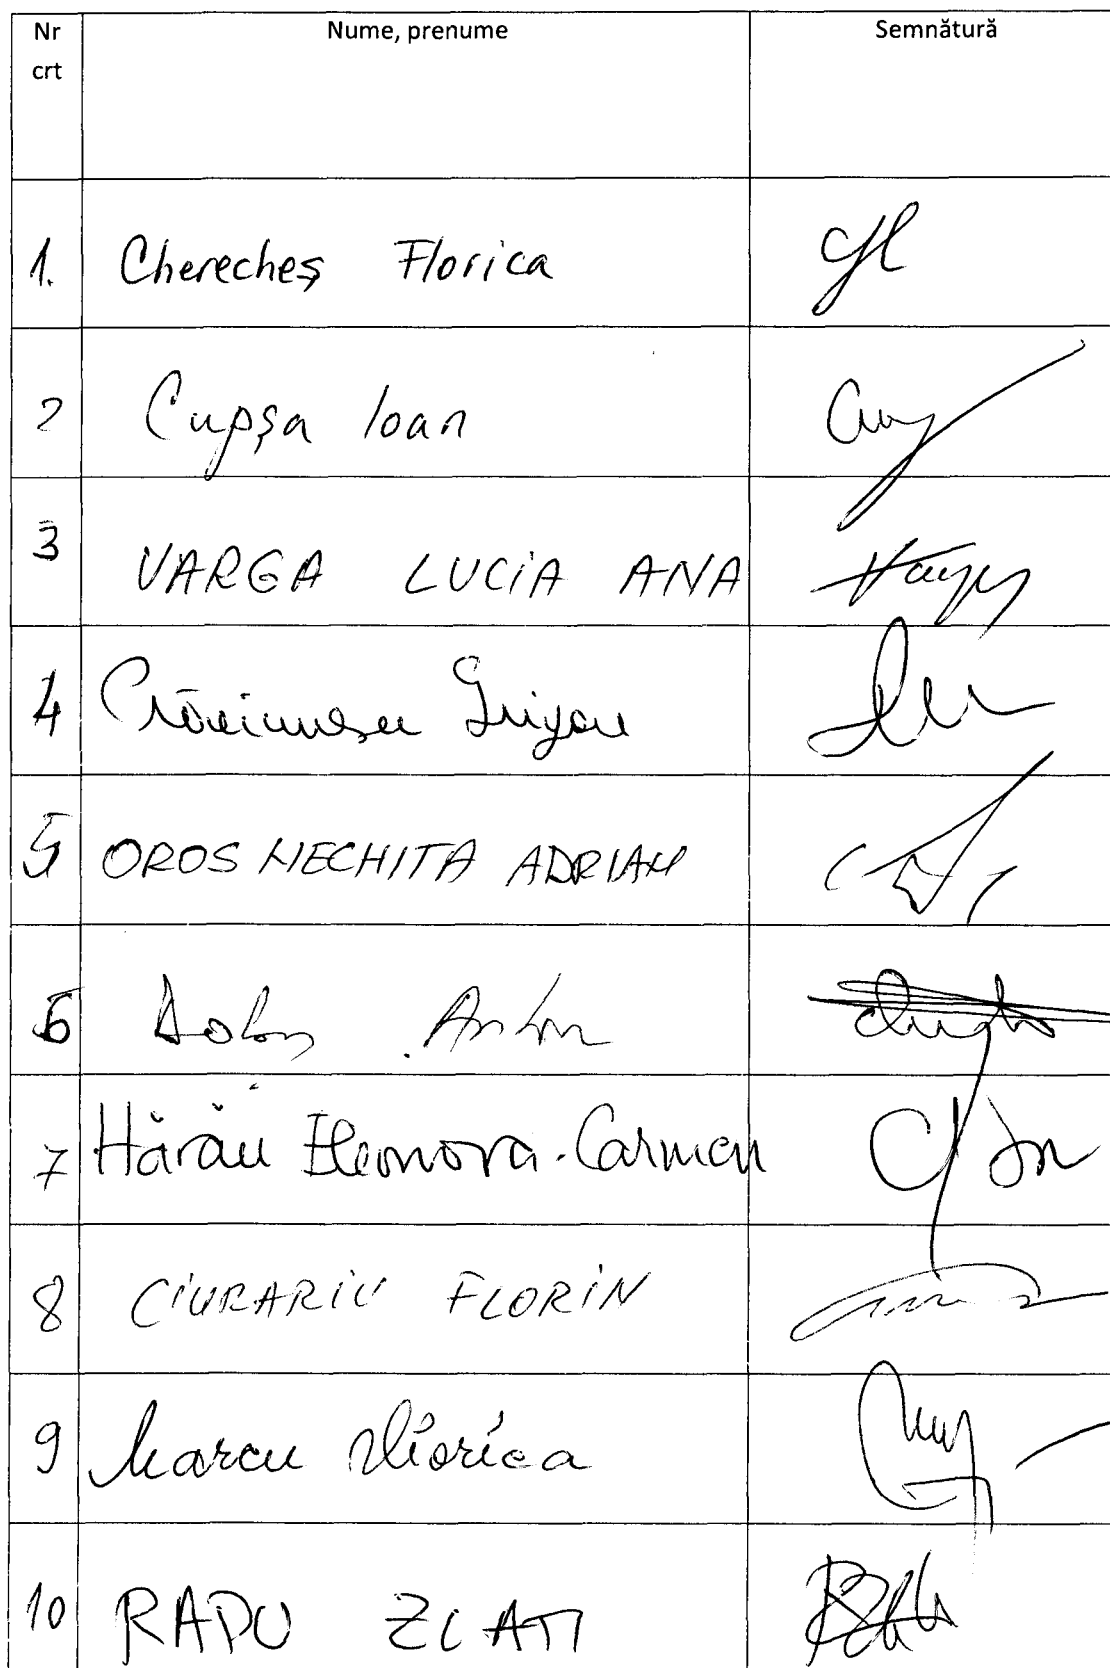 Nr crt Nume, prenume Semnătură
1. Cherecheș Florica
2 Cupșa Ioan
3 VARGA LUCIA ANA
4 Crăciunescu Grigore
5 OROS NECHITA ADRIAN
6 Anton
7 Hărău Eleonora-Carmen
8 CIURARIU FLORIN
9 Marcu Viorica
10 RADU ZLATI